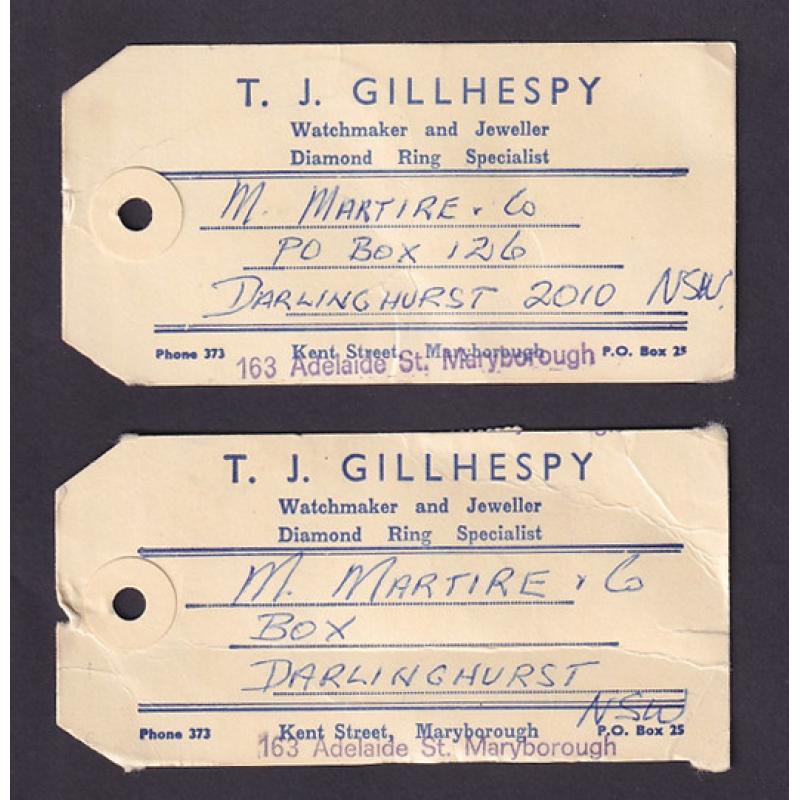 T. J. GILLHESPY
Watchmaker and Jeweller
Diamond Ring Specialist
M. MARTIRE & Co
PO BOX 126
DARLINGHURST 2010 NSW.
Phone 373 Kent Street, Maryborough P.O. Box 25
163 Adelaide St. Maryborough
T. J. GILLHESPY
Watchmaker and Jeweller
Diamond Ring Specialist
M. MARTIRE & Co
BOX
DARLINGHURST
NSW
Phone 373 Kent Street, Maryborough P.O. Box 25
163 Adelaide St. Maryborough